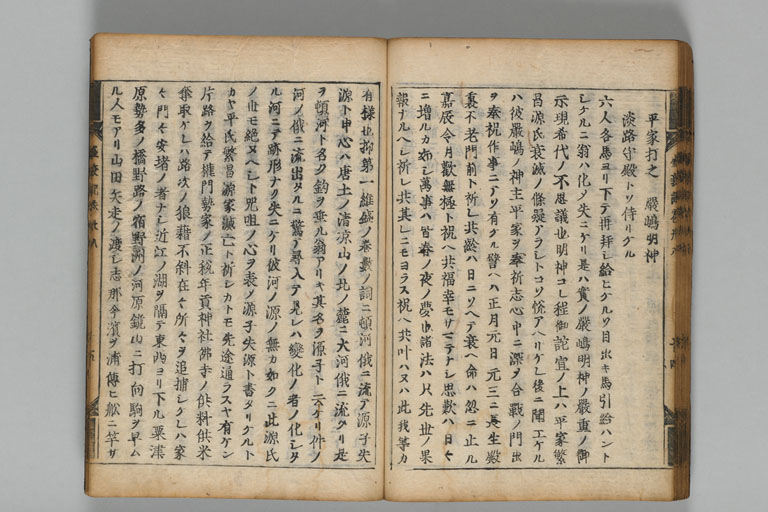 平家打之　嚴嶋明神
淡路守殿トソ侍リケル
六人各馬ヨリ下テ再拝シ給ヒケルソ目出キ馬引給ハント
シケルニ翁ハ化ノ失ニケリ是ハ實ノ嚴嶋明神ノ嚴重ノ御
示現希代ノ不思議也明神コレ程御詫宣ノ上ハ平家繁
昌源氏衰滅ノ條疑アラントコソ悦アヘリケレ後ニ聞エケル
ハ彼嚴嶋ノ神主平家ヲ奉祈志心中ニ深ク合戰ノ門出
ヲ奉祝作事ニアソ有ケル譬ヘハ正月元日元三ニ長生殿
裏不老門前ト祈シ共齢ハ日ニソヘテ衰ヘ命ハ忽ニ止ル
嘉辰令月歡無極ト祝ヘ共福幸モサニテナシ思歎ハ日々
ニ増ルカ如シ萬事ハ皆春ノ夜ノ夢也諸法ハ只先世ノ果
報ナルヘシ祈シ共其シニモヨラス祝ヘ共叶ハヌハ此我等カ
有樣也抑第一雄盛ノ卷數ノ詞ニ頓河俄ニ流テ源子失
源ト申心ハ唐土ノ清凉山ノ北ノ麓ニ大河俄ニ流タリ是
ヲ頓河ト名ク釣ヲ垂ル翁アリキ其名ヲ源子ト云ケリ件ノ
河ノ俄ニ流出タルニ驚テ尋入テ見レハ變化ノ者ノ化シタ
ル河ニテ跡形ナク失ニケリ彼河ノ源ノ無カ如クニ此源氏
ノ世モ絶ヌヘシト咒咀ノ心ヲ表ノ源子失源ト書タリケルト
カヤ平氏繁昌源家滅亡ト祈シカトモ先途通ラスヤ有ケン
片路ヲ給テ權門勢家ノ正税年貢神社佛寺ノ供料供米
奪取ケレハ路次ノ狼藉不斜在々所々ヲ追捕シケレハ家
々門々安堵ノ者ナシ近江ノ湖ヲ隔テ東西ヨリ下ル粟津
原勢多ノ橋野路ノ宿野洲ノ河原鏡山ニ打向駒ヲ早ム
ル人モアリ山田矢走ノ渡シ志那今濱ヲ浦傳ヒ舩ニ竿サ